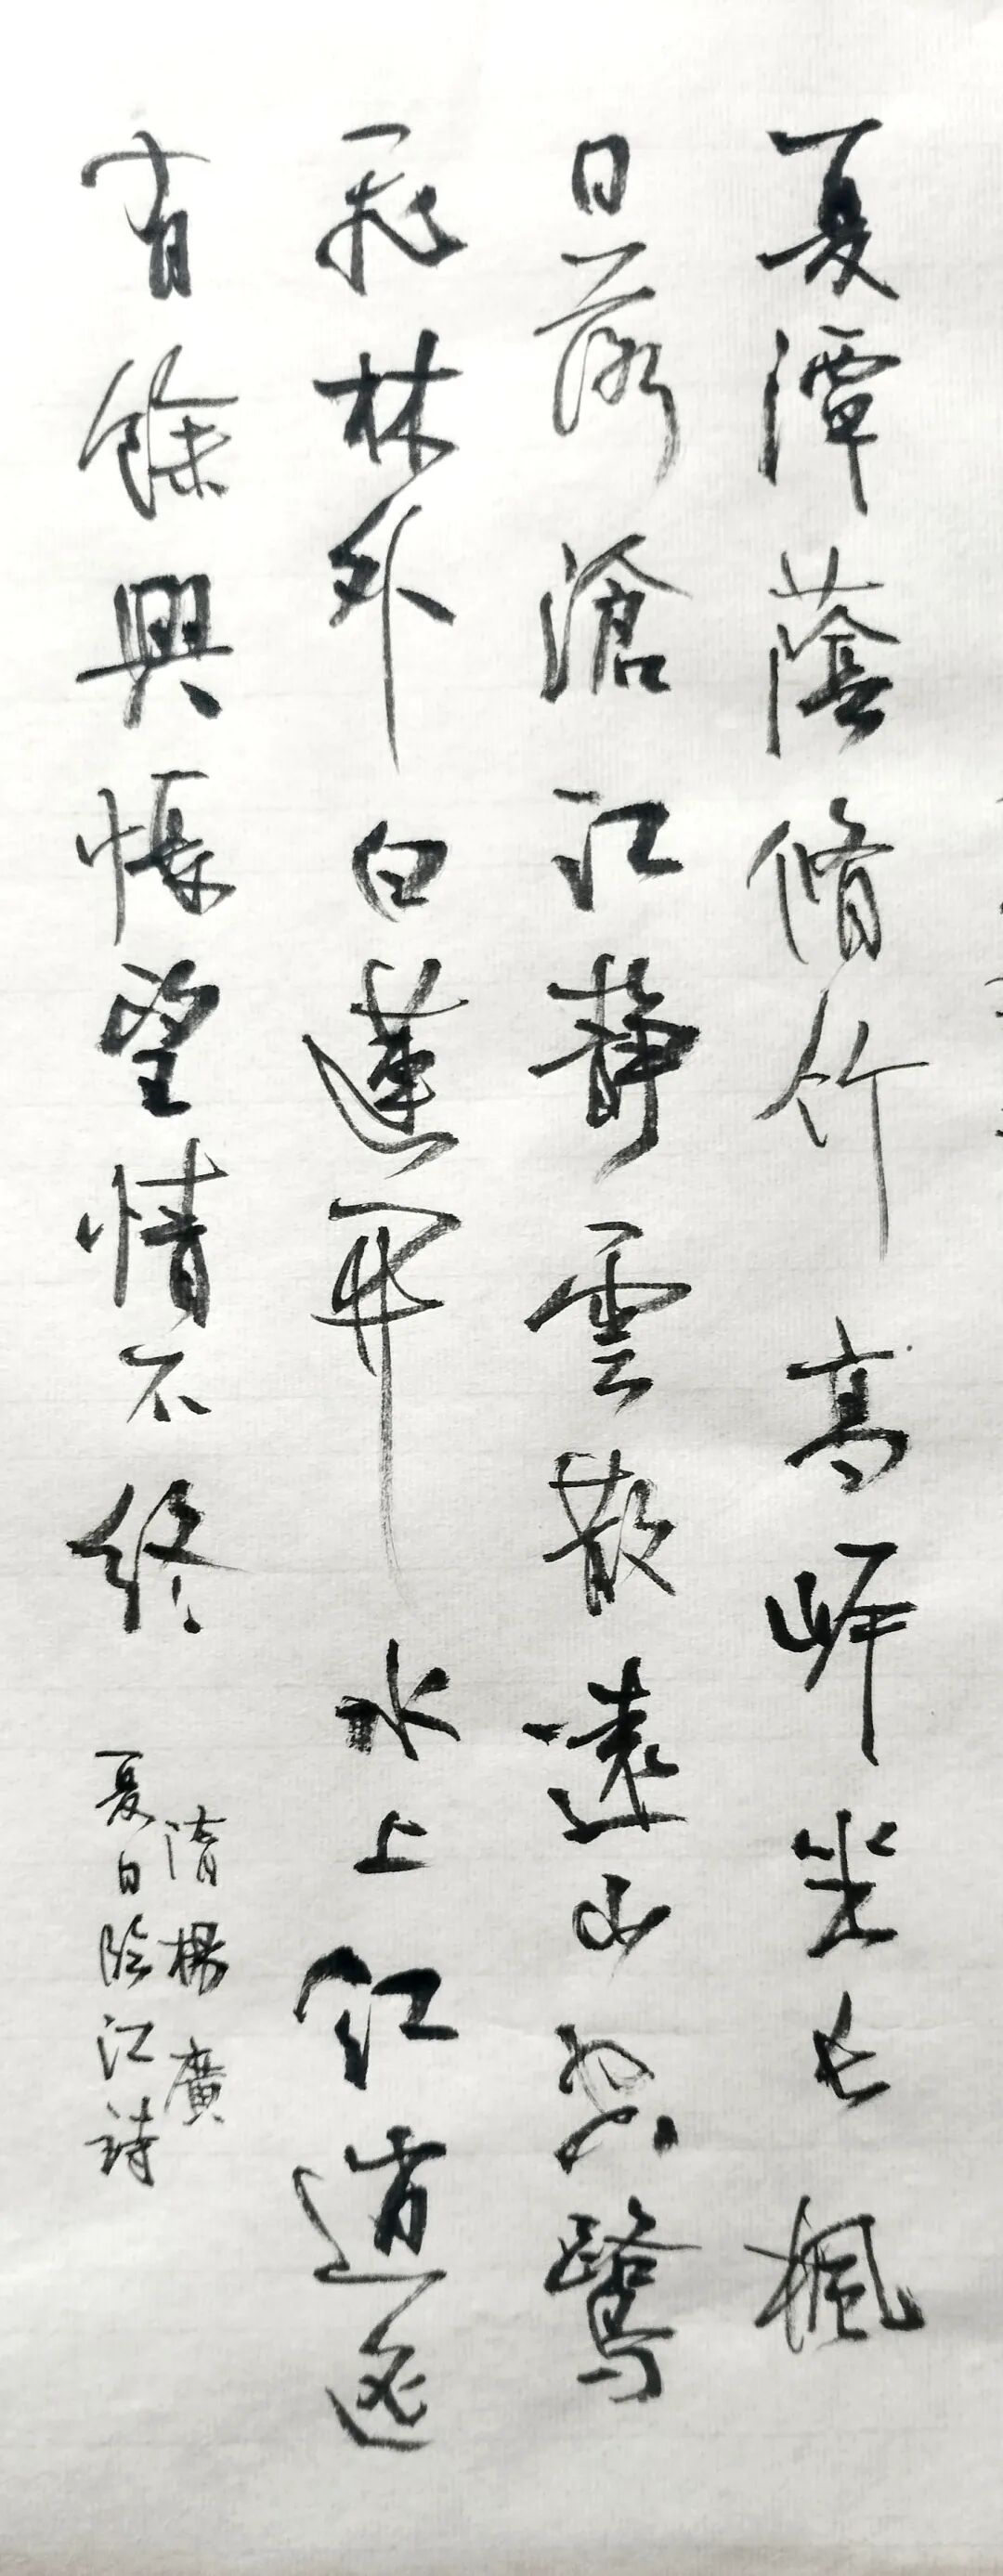 夏潭蔭脩竹高岸坐長楓
日落滄江靜雲散遠山空鷺
飛林外白蓮開水上紅逍遙
有餘興悵望情不終
隋楊廣
夏日臨江詩